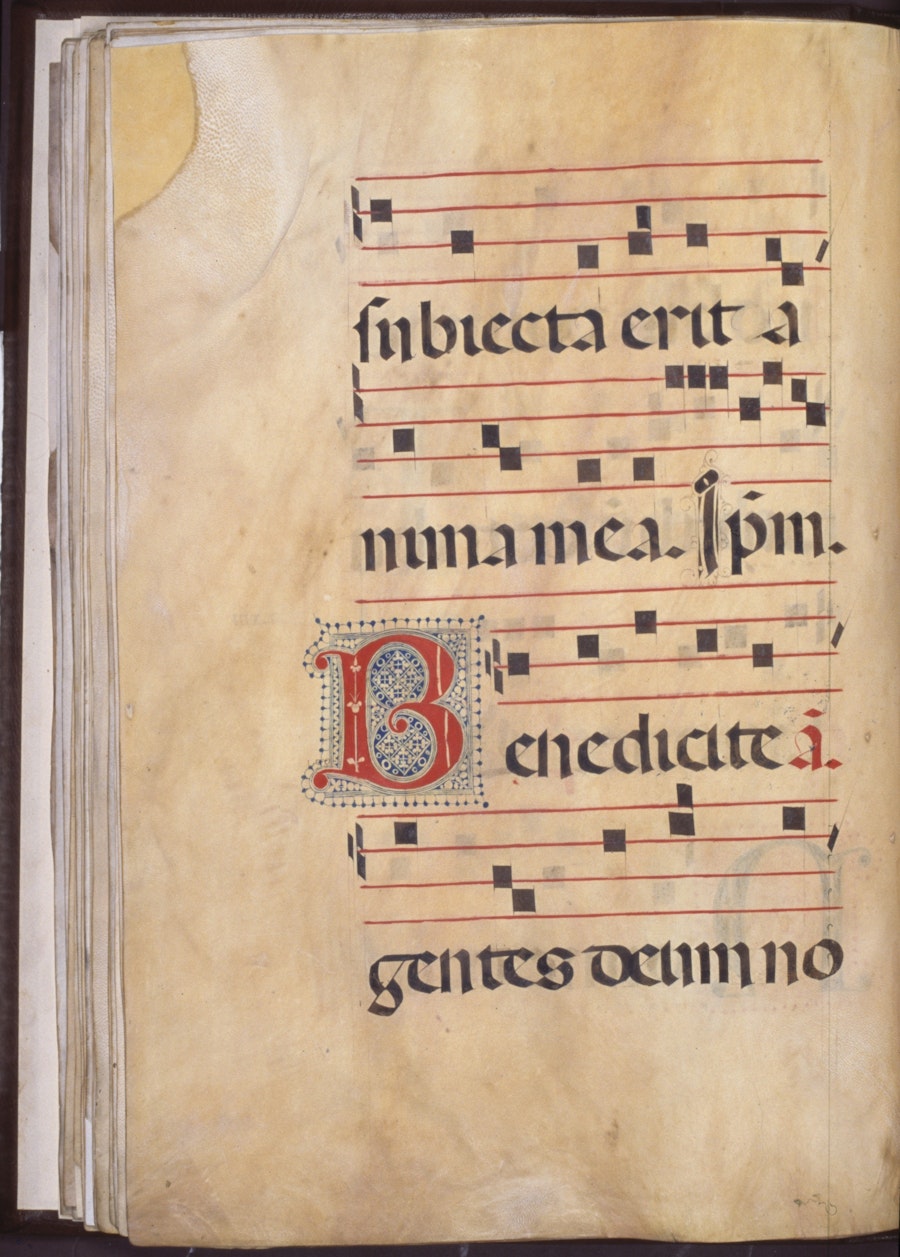 subiecta erit a
nima mea. Ip̄m.
Benedicite ā.
gentes deum no